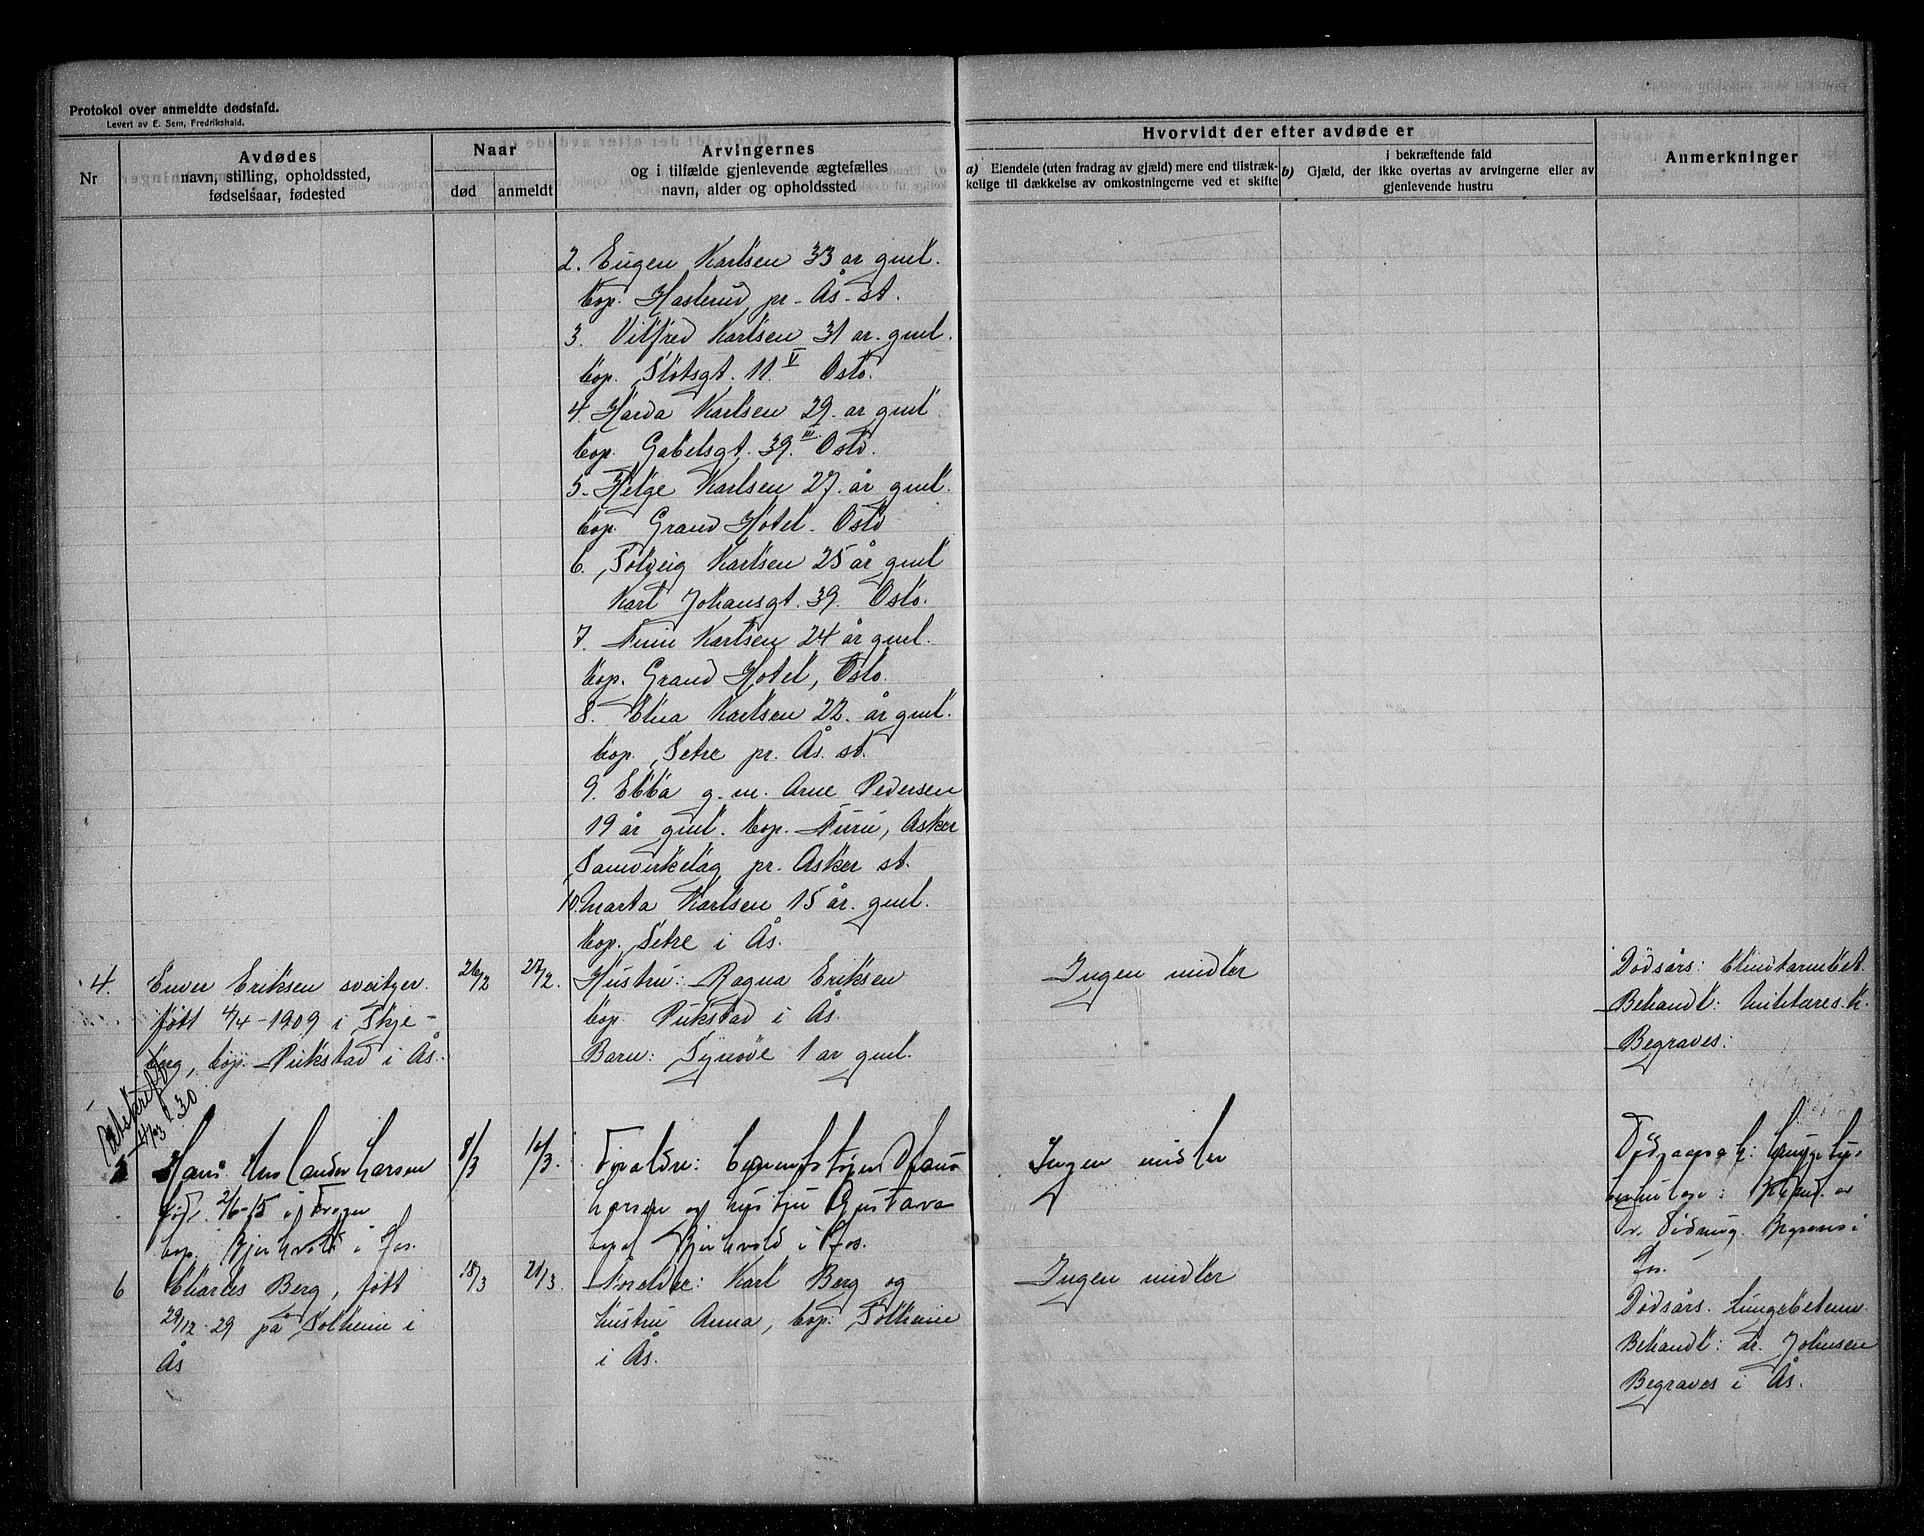 Protokol over anmeldte dødsfald.
Levert av E. Sem, Fredrikshald.
Nr
Avdødes
navn, stilling, opholdssted,
fødselsaar, fødested
Naar
død
anmeldt
Arvingernes
og i tilfælde gjenlevende ægtefælles
navn, alder og opholdssted
Hvorvidt der efter avdøde er
a) Eiendele (uten fradrag av gjæld) mere end tilstræk-
kelige til dækkelse av omkostningerne ved et skifte
i bekræftende fald
b) Gjæld, der ikke overtas av arvingerne eller av
gjenlevende hustru
Anmerkninger
2. Eugen Karlsen 33 år gml.
bop. Hasterud pr. Ås st.
3. Vilfred Karlsen 31 år. gml.
bop. Slotsgt. 11. V Oslo.
4. Harda Karlsen 29. år gml.
bop. Gabelsgt. 39. III Oslo.
5. Helge Karlsen 27. år gml.
bop. Grand Hotel. Oslo
6. Solveig Karlsen 25 år gml
Karl Johansgt. 39. Oslo.
7. Karlsen 24 år gml.
bop. Grand Hotel, Oslo.
8. Karlsen 22. år gml.
bop. Setre pr. Ås. st.
9. Ebba g. m. Arne Pedersen
19 år gml. bop. Asker
Samvirkelag pr. Asker st.
10. Marta Karlsen 15 år. gml.
bop. Setre i Ås.
4. Enver Eriksen sveitser
født 4/4-1909 i Skje-
berg, bop. i Ås.
26/2
27/2.
Hustru: Ragna Eriksen
bop. i Ås.
Barn: Synøve 1 år gml.
Ingen midler
Dødsårs: blindtarmbet.
Behandl: Militæres.
Begraves:
30
Hans Larsen
født 2/6-15 i Frogn
bop. i Ås.
8/3
10/3.
Forældre: Hans
Larsen og hustru Gustava
bopæl i Ås.
Ingen midler
Dødsaarsak:
Behand. av
Dr. Begraves i
Ås.
6 Charles Berg, født
29/12-29 på Solheim i
Ås
18/3
21/3.
Foreldre: Karl Berg og
hustru Anna, bop. Solheim
i Ås.
Ingen midler
Dødsårs. Lungebetenn.
Behandl: dr. Johnsen
Begraves i Ås.